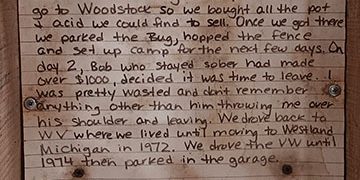 go to Woodstock so we bought all the pot
& acid we could find to sell. Once we got there
we parked the Bug, hopped the fence
and set up camp for the next few days. On
day 2, Bob who stayed sober had made
over $1000, decided it was time to leave. I
was pretty wasted and don't remember
anything other than him throwing me over
his shoulder and leaving. We drove back to
WV where we lived until moving to Westland
Michigan in 1972. We drove the VW until
1974 then parked in the garage.